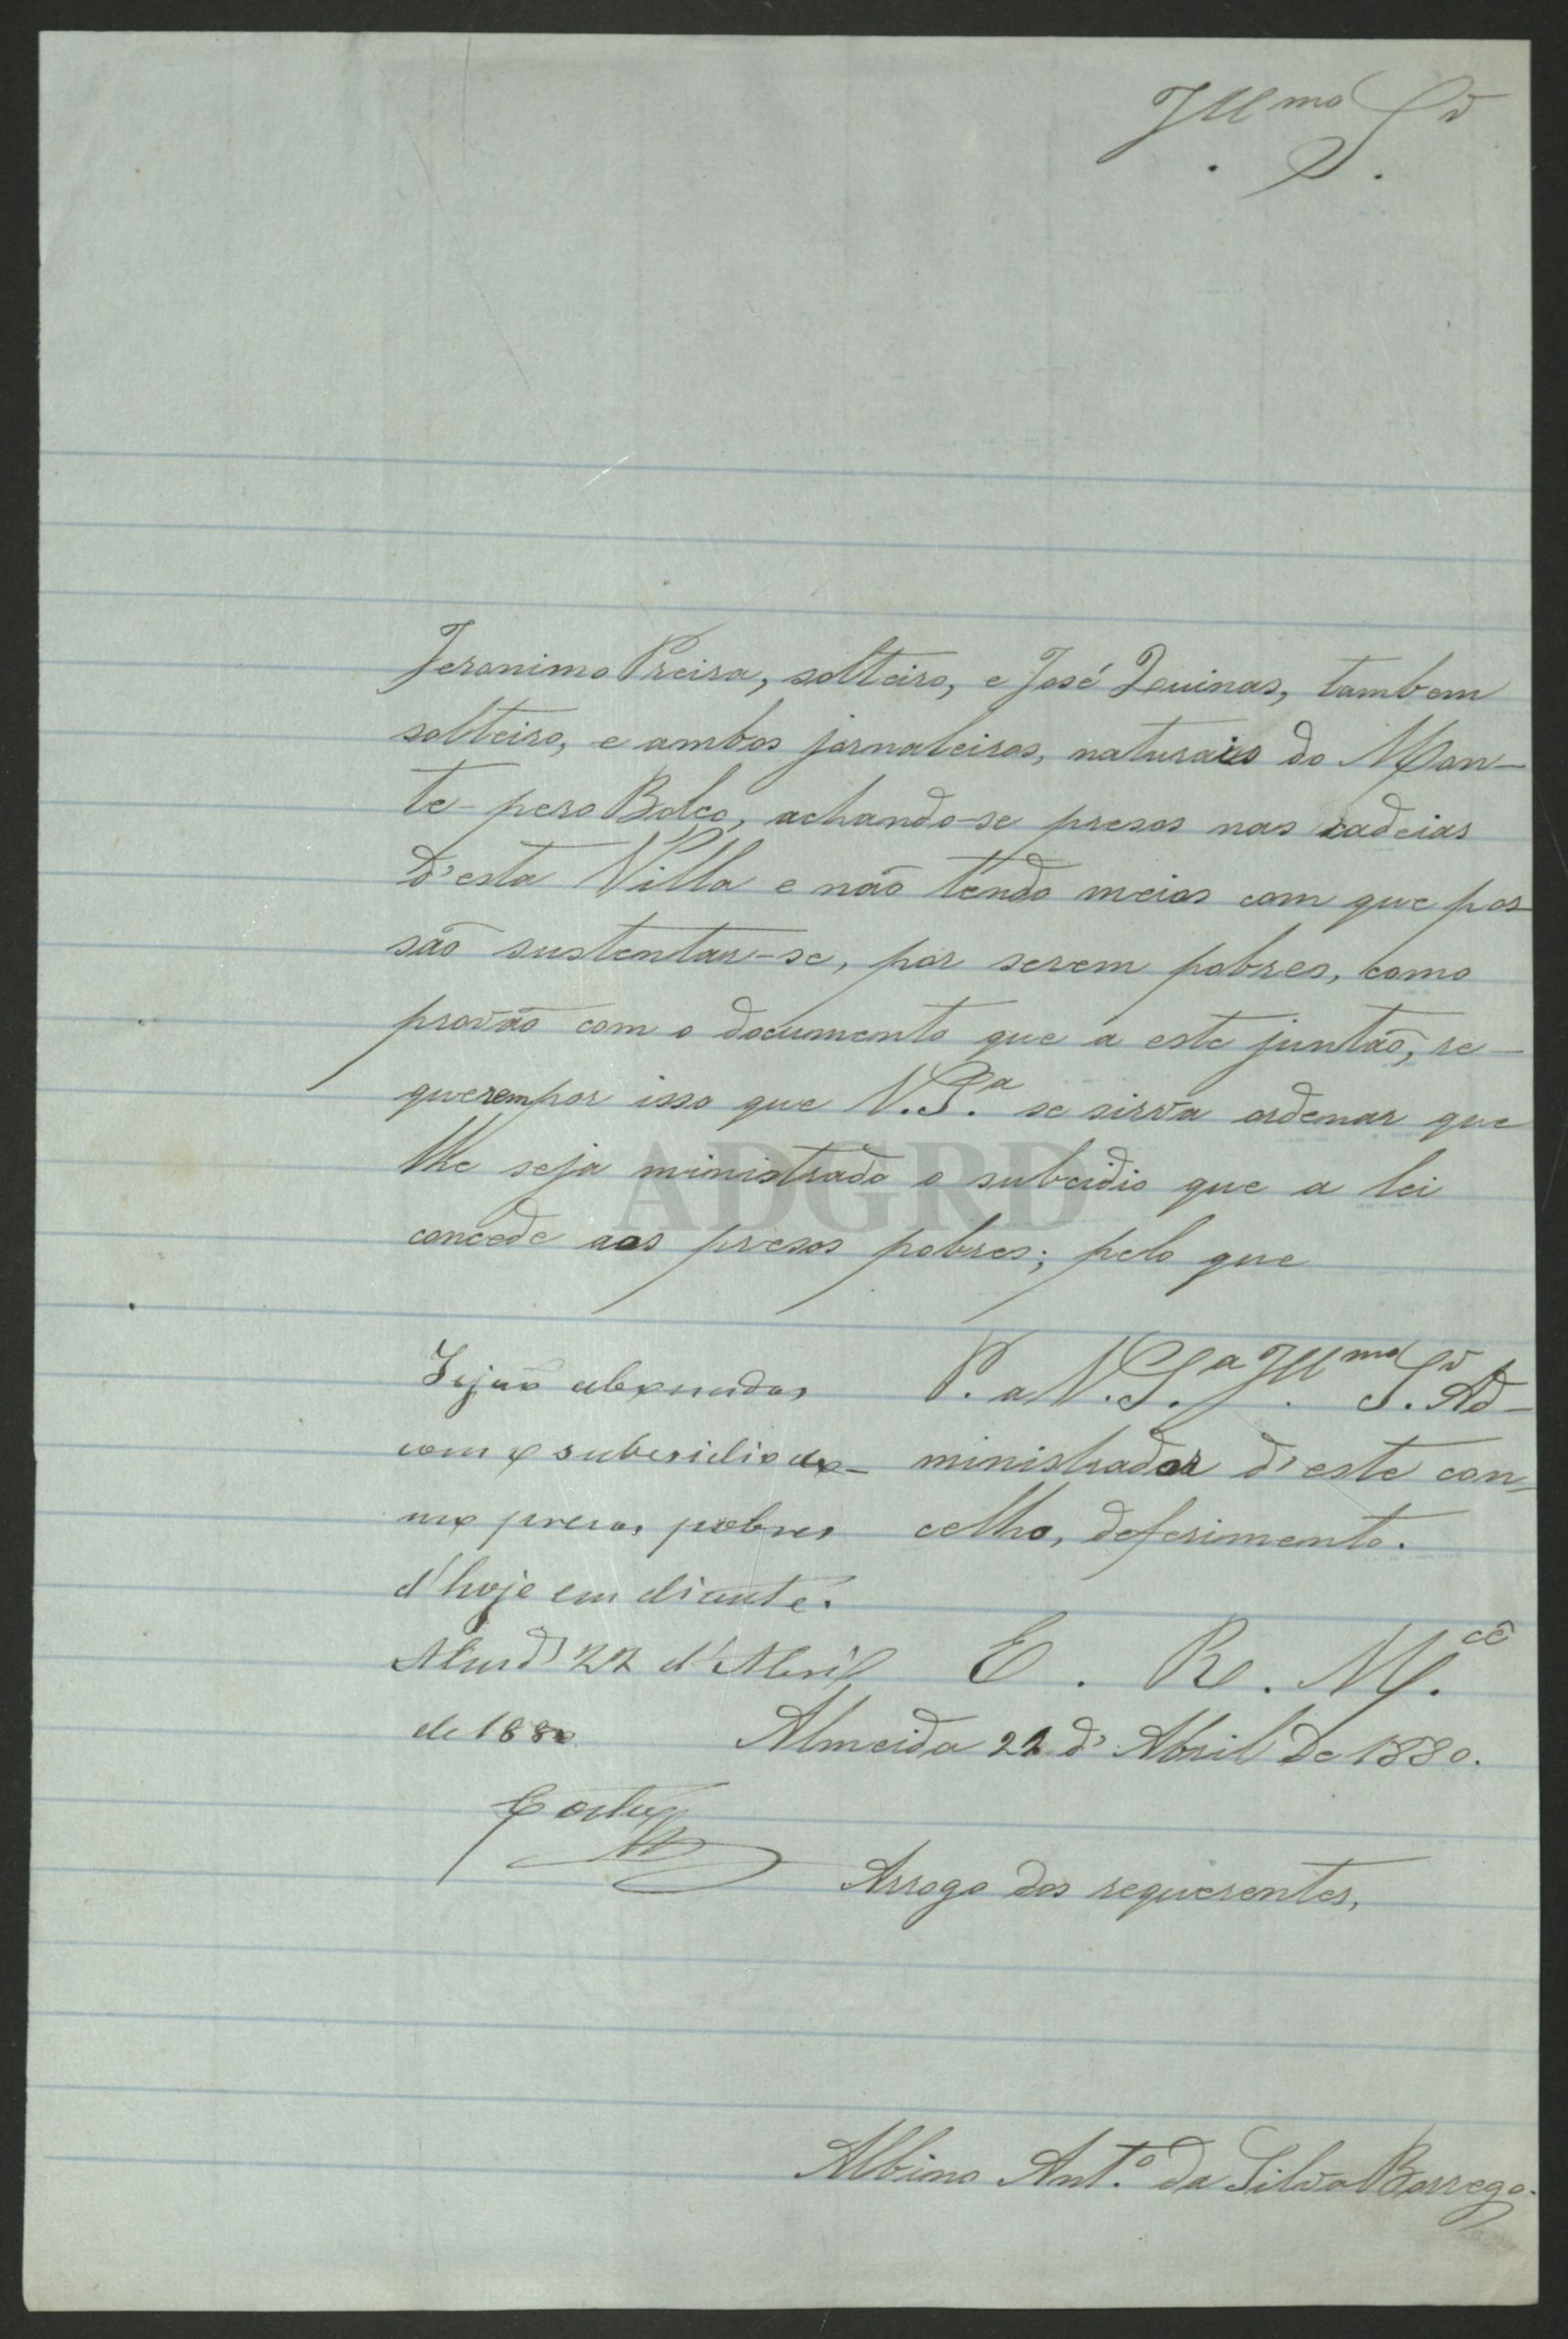 Illmo Sr
Jeronimo Preira, solteiro, e José Quinas, tambem
solteiro, e ambos jornaleiros, naturais do Mon-
te-pero Bolço, achando-se presos nas cadeias
d'esta Villa e não tendo meios com que pos-
são sustentar-se, por serem pobres, como
provão com o documento que a este juntão, re-
querem por isso que V. S.a se sirva ordenar que
lhe seja ministrado o subcidio que a lei
concede aos presos pobres; pelo que
P. a V. S.a Illmo Sr. Ad-
ministrador d'este con-
celho, deferimento.
E. R. M.cê
Almeida 22 d'Abril de 1880.
Arrogo dos requerentes,
Albino Ant.o da Silva Borrego.
Sejão abonados
com o subsidio co-
mo presos pobres
d'hoje em diante.
Almd.a 22 d'Abril
de 1880
Costa
ADGRD